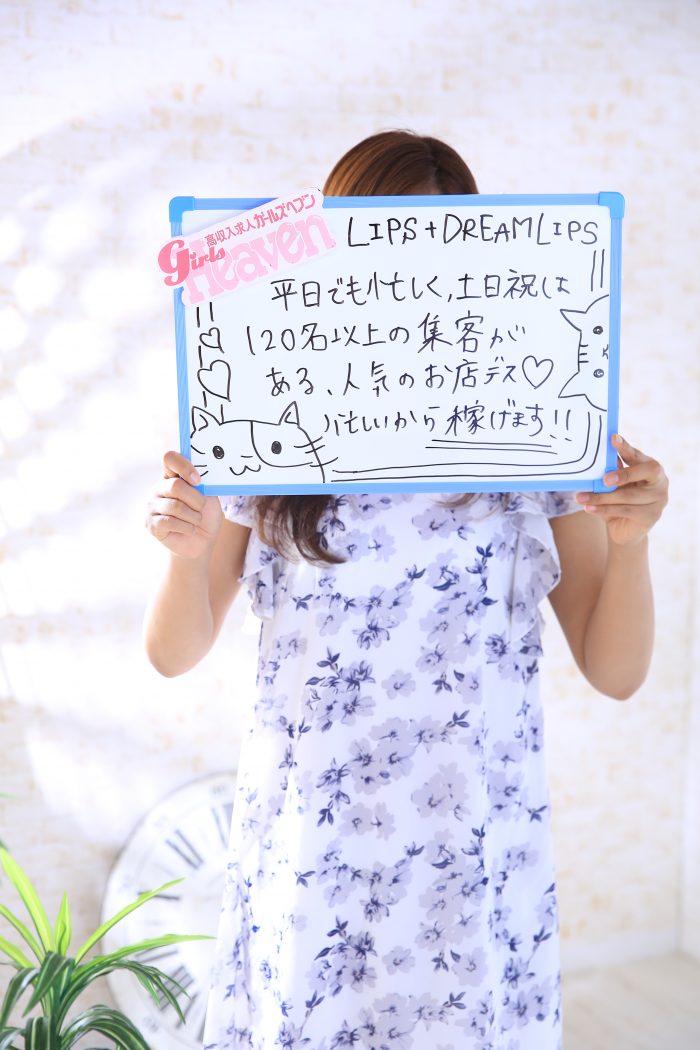 高収入求人ガールズヘブン
Girls Heaven
LIPS+DREAMLIPS
平日でも忙しく,土日祝は
120名以上の集客が
ある、人気のお店デス♡
忙しいから稼げます!!